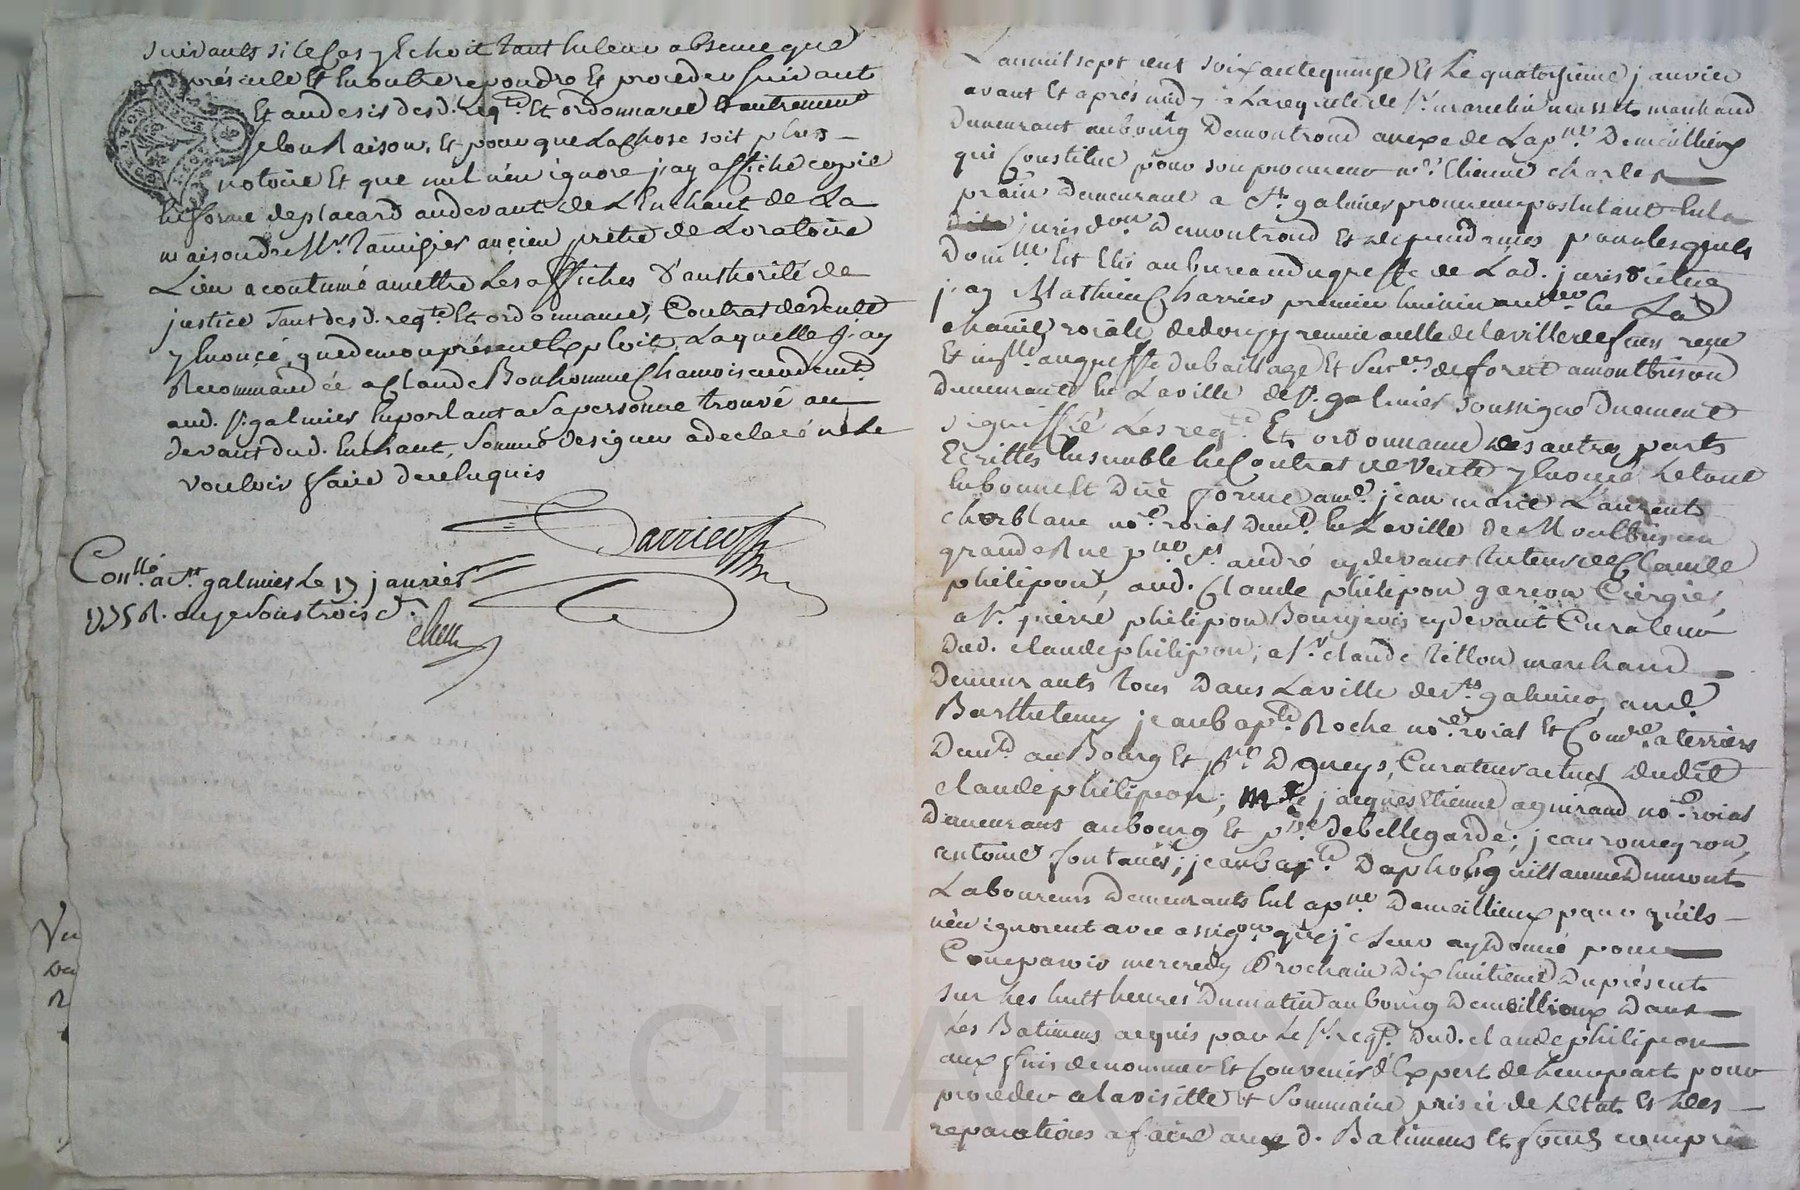 suivants si le Cas y Echoit tant En leur absence que
présence Et En outre repondre Et proceder suivant
Et audesir desd. req.te Et ordonnance Et autrement
selon Raison, Et pour que La Chose soit plus
notoire Et que nul n'en ignore j'ay affiché copie
En forme de placard audevant de L'Enchant de La
maison de Mr. ancien pretre de Loratoire
Lieu acoutumé a mettre Les affiches d'authorité de
justice Tant desd. req.te Et ordonnance, Contrat de vente
y Enoncé, que de mon présent Exploit, Laquelle j'ay
Recommandée a Claude Bonhomme Chamoiseur demt.
aud. St. galmier En parlant a Sa personne trouvé au
devant dud. Enchant, Sommé de signer a declaré ne Le
vouloir faire de ce Enquis
Charrier
Conllé a St galmier Le 17 janvier
1775 R. onze Sous trois d.
L'an mil sept cent soixante quinze Et Le quatorzieme janvier
avant Et aprés midy a La requete de Sr. marcelin musset marchand
demeurant au bourg de montrond annexe de La pne. de meillieux
qui Constitue pour son procureur me. Etienne charles
prain demeurant a St. galmier procureur postulant En la
jurisdon. de montrond Et dependances pour lesquels
domlle Est Elu au bureau du greffe de Lad. jurisdiction
j'ay Mathieu Charrier premier huissier En La
royale de
Et au greffe du bailliage Et de forest a montbrison
demeurant En La ville de St. galmier Soussigné duement
signiffié Les req.te Et ordonnance des autres parts
Ecrittes Ensemble Le Contrat de Vente y Enoncé Le tout
En bonne Et duë forme a me. jean marie Laurent
chorblanc nore. roial demt. En La ville de Montbrison
grande Rue pnne St. andré cy devant tuteur de Claude
philipon, aud. Claude philipon garcon Cirgier,
a Sr. pierre philipon Bourgeois cy devant Curateur
dud. claude philipon; a Sr. claude tillon marchand
demeurants tous dans La ville de St. galmier, a me.
Barthelemy jean bapte. Roche nore. roial Et Commre. a terriers
demt. au Bourg Et psse d'oneys, Curateur actuel dudit
claude philipon; Me jacques Etienne aguiraud nore. roial
demeurant au bourg Et psse. de bellegarde; jean romeyron,
antoine fontanés; jean bapte. guillaume dumont
Laboureurs demeurants En La pnne de meillieux pour qu'ils
n'en ignorent avec assigon. que je Leur ay donné pour
Comparoir mercredy Prochain dix huitieme du présent
sur Les huit heures du matin au bourg de meillieux dans
Les Batimens acquis par Le Sr. reqt. dud. claude philipon
aux fins de nommer Et Convenir d'Expert de Leur part pour
proceder a la visitte Et Sommaire prisée de L'Etat Et des
reparations a faire auxd. Batimens Et fonds compris
Vu